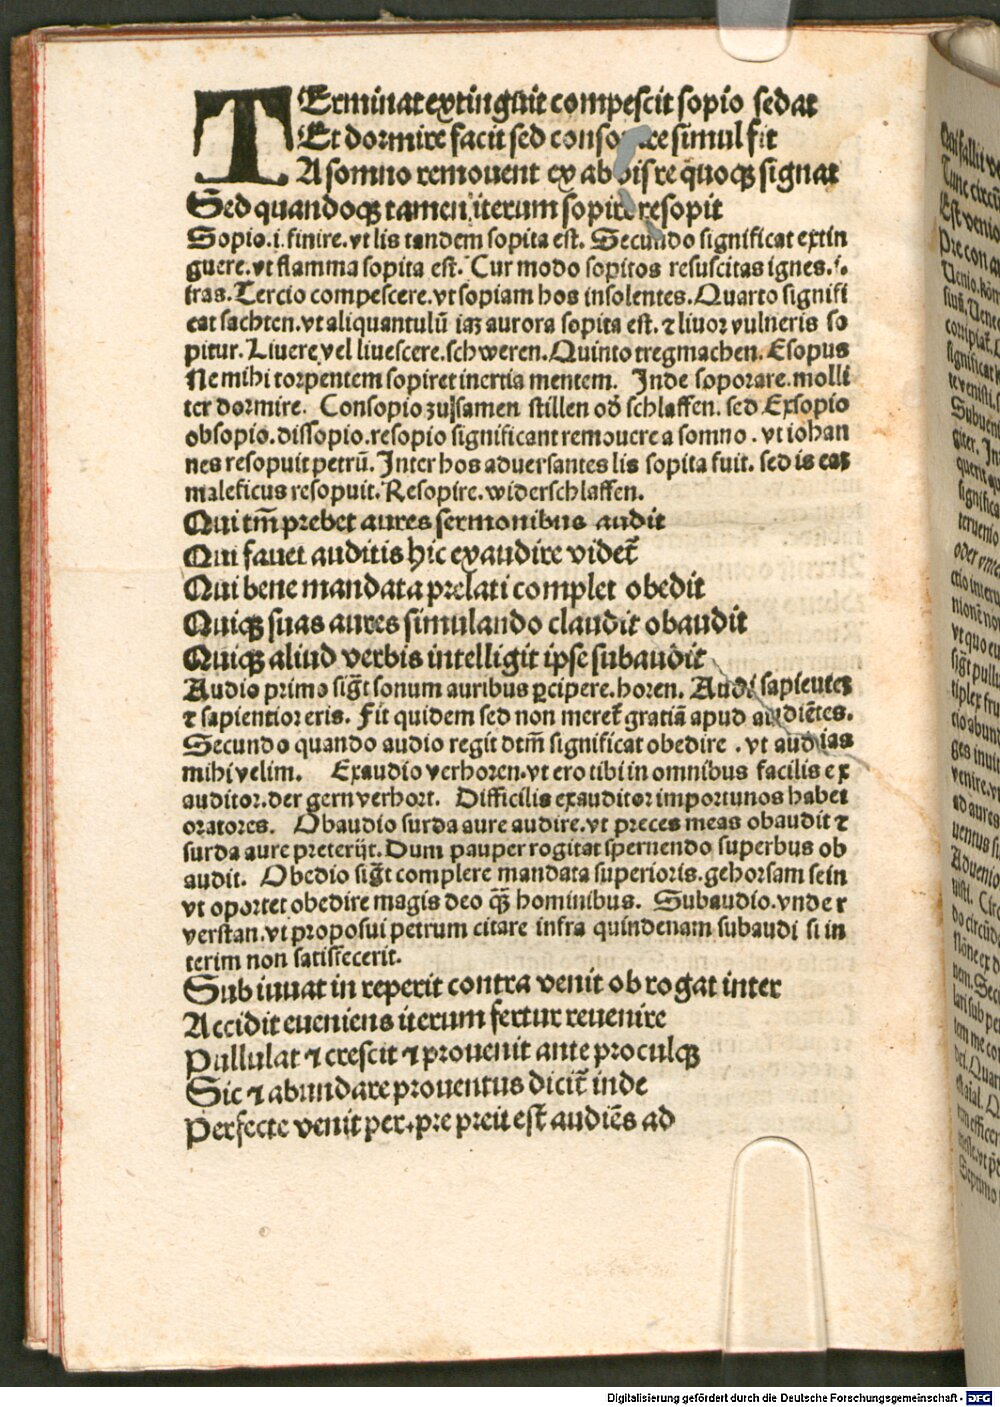 TErminat extinguit compescit sopio sedat
Et dormire facit sed consopire simul fit
A somno remouent ex ab dis re quoqꝫ signat
Sed quandoqꝫ tamen iterum sopire resopit
Sopio.i.finire.vt lis tandem sopita est. Secundo significat extin
guere.vt flamma sopita est. Cur modo sopitos resuscitas ignes.
tras. Tercio compescere.vt sopiam hos insolentes. Quarto signifi
cat sachten.vt aliquantulū iaꝫ aurora sopita est. ⁊ liuor vulneris so
pitur. Liuere vel liuescere.schweren. Quinto tregmachen. Esopus
Ne mihi torpentem sopiret inertia mentem. Inde soporare.molli
ter dormire. Consopio zusamen stillen od̕ schlaffen. sed Exsopio
obsopio.dissopio.resopio significant remouere a somno . vt iohan
nes resopuit petrū. Inter hos aduersantes lis sopita fuit. sed is eaꝫ
maleficus resopuit. Resopire.widerschlaffen.
Qui tm̄ prebet aures sermonibus audit
Qui fauet auditis hic exaudire videt᷑
Qui bene mandata prelati complet obedit
Quiqꝫ suas aures simulando claudit obaudit
Quiqꝫ aliud verbis intelligit ipse subaudit
Audio primo sigt̄ sonum auribus ꝑcipere.horen. Audi sapientes
⁊ sapientior eris. Fit quidem sed non meret᷑ gratiā apud audiētes.
Secundo quando audio regit dtm̄ significat obedire . vt audias
mihi velim. Exaudio verhoren.vt ero tibi in omnibus facilis ex
auditor.der gern verhort. Difficilis exauditor importunos habet
oratores. Obaudio surda aure audire.vt preces meas obaudit ⁊
surda aure preterijt. Dum pauper rogitat spernendo superbus ob
audit. Obedio sigt̄ complere mandata superioris.gehorsam sein
vt oportet obedire magis deo qꝫ̄ hominibus. Subaudio.vnder
verstan.vt proposui petrum citare infra quindenam subaudi si in
terim non satisfecerit.
Sub iuuat in reperit contra venit ob rogat inter
Accidit eueniens iterum fertur reuenire
Pullulat ⁊ crescit ⁊ prouenit ante proculqꝫ
Sic ⁊ abundare prouentus dicit᷑ inde
Perfecte venit per.pre preit est audiēs ad
Digitalisierung gefördert durch die Deutsche Forschungsgemeinschaft - DFG